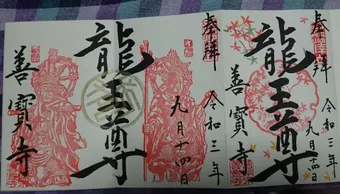 奉拝
令和三年
九月十四日
龍王尊
善寳寺
奉拝
令和三年
九月十四日
龍王尊
善寳寺